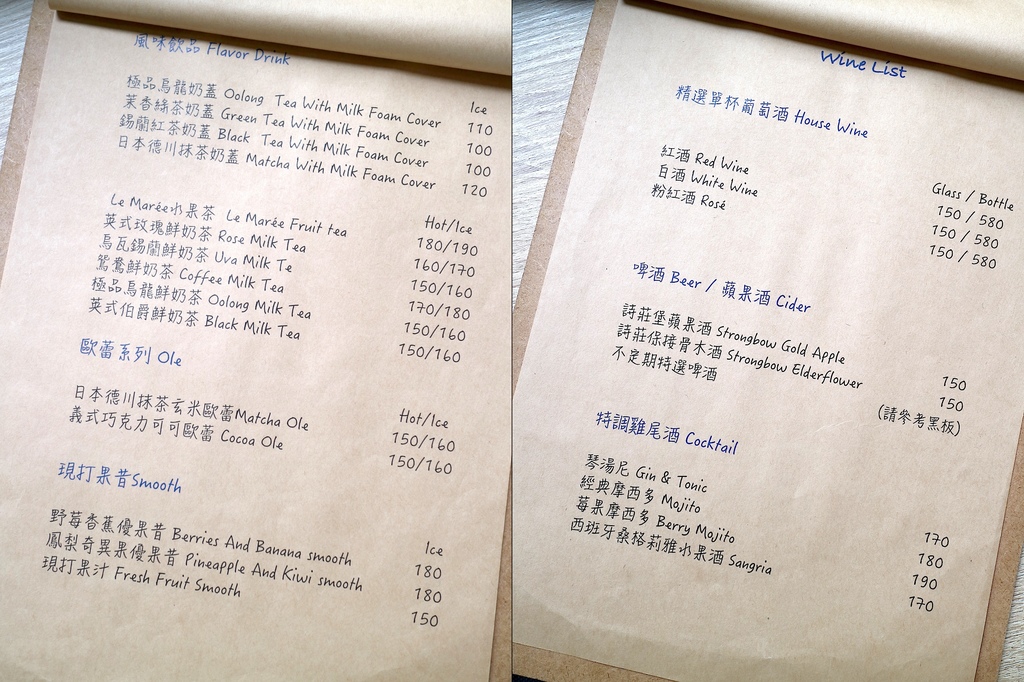 風味飲品 Flavor Drink
Ice
極品烏龍奶蓋 Oolong Tea With Milk Foam Cover 110
茉香綠茶奶蓋 Green Tea With Milk Foam Cover 100
錫蘭紅茶奶蓋 Black Tea With Milk Foam Cover 100
日本德川抹茶奶蓋 Matcha With Milk Foam Cover 120
Hot/Ice
Le Marée水果茶 Le Marée Fruit tea 180/190
英式玫瑰鮮奶茶 Rose Milk Tea 160/170
烏瓦錫蘭鮮奶茶 Uva Milk Te 150/160
鴛鴦鮮奶茶 Coffee Milk Tea 170/180
極品烏龍鮮奶茶 Oolong Milk Tea 150/160
英式伯爵鮮奶茶 Black Milk Tea 150/160
歐蕾系列 Ole
Hot/Ice
日本德川抹茶玄米歐蕾Matcha Ole 150/160
義式巧克力可可歐蕾 Cocoa Ole 150/160
現打果昔Smooth
Ice
野莓香蕉優果昔 Berries And Banana smooth 180
鳳梨奇異果優果昔 Pineapple And Kiwi smooth 180
現打果汁 Fresh Fruit Smooth 150
Wine List
精選單杯葡萄酒 House Wine
Glass / Bottle
紅酒 Red Wine 150 / 580
白酒 White Wine 150 / 580
粉紅酒 Rosé 150 / 580
啤酒 Beer / 蘋果酒 Cider
詩莊堡蘋果酒 Strongbow Gold Apple 150
詩莊保接骨木酒 Strongbow Elderflower 150
不定期特選啤酒 (請參考黑板)
特調雞尾酒 Cocktail
琴湯尼 Gin & Tonic 170
經典摩西多 Mojito 180
莓果摩西多 Berry Mojito 190
西班牙桑格莉雅水果酒 Sangria 170